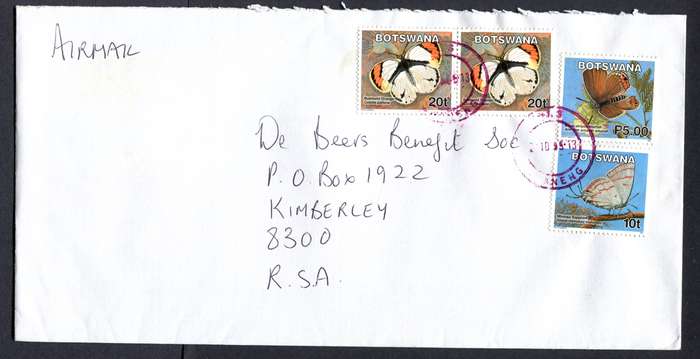 AIRMAIL
BOTSWANA
20t
BOTSWANA
20t
BOTSWANA
P5.00
BOTSWANA
10t
De Beers Benefit Soc
P.O. Box 1922
KIMBERLEY
8300
R.S.A.